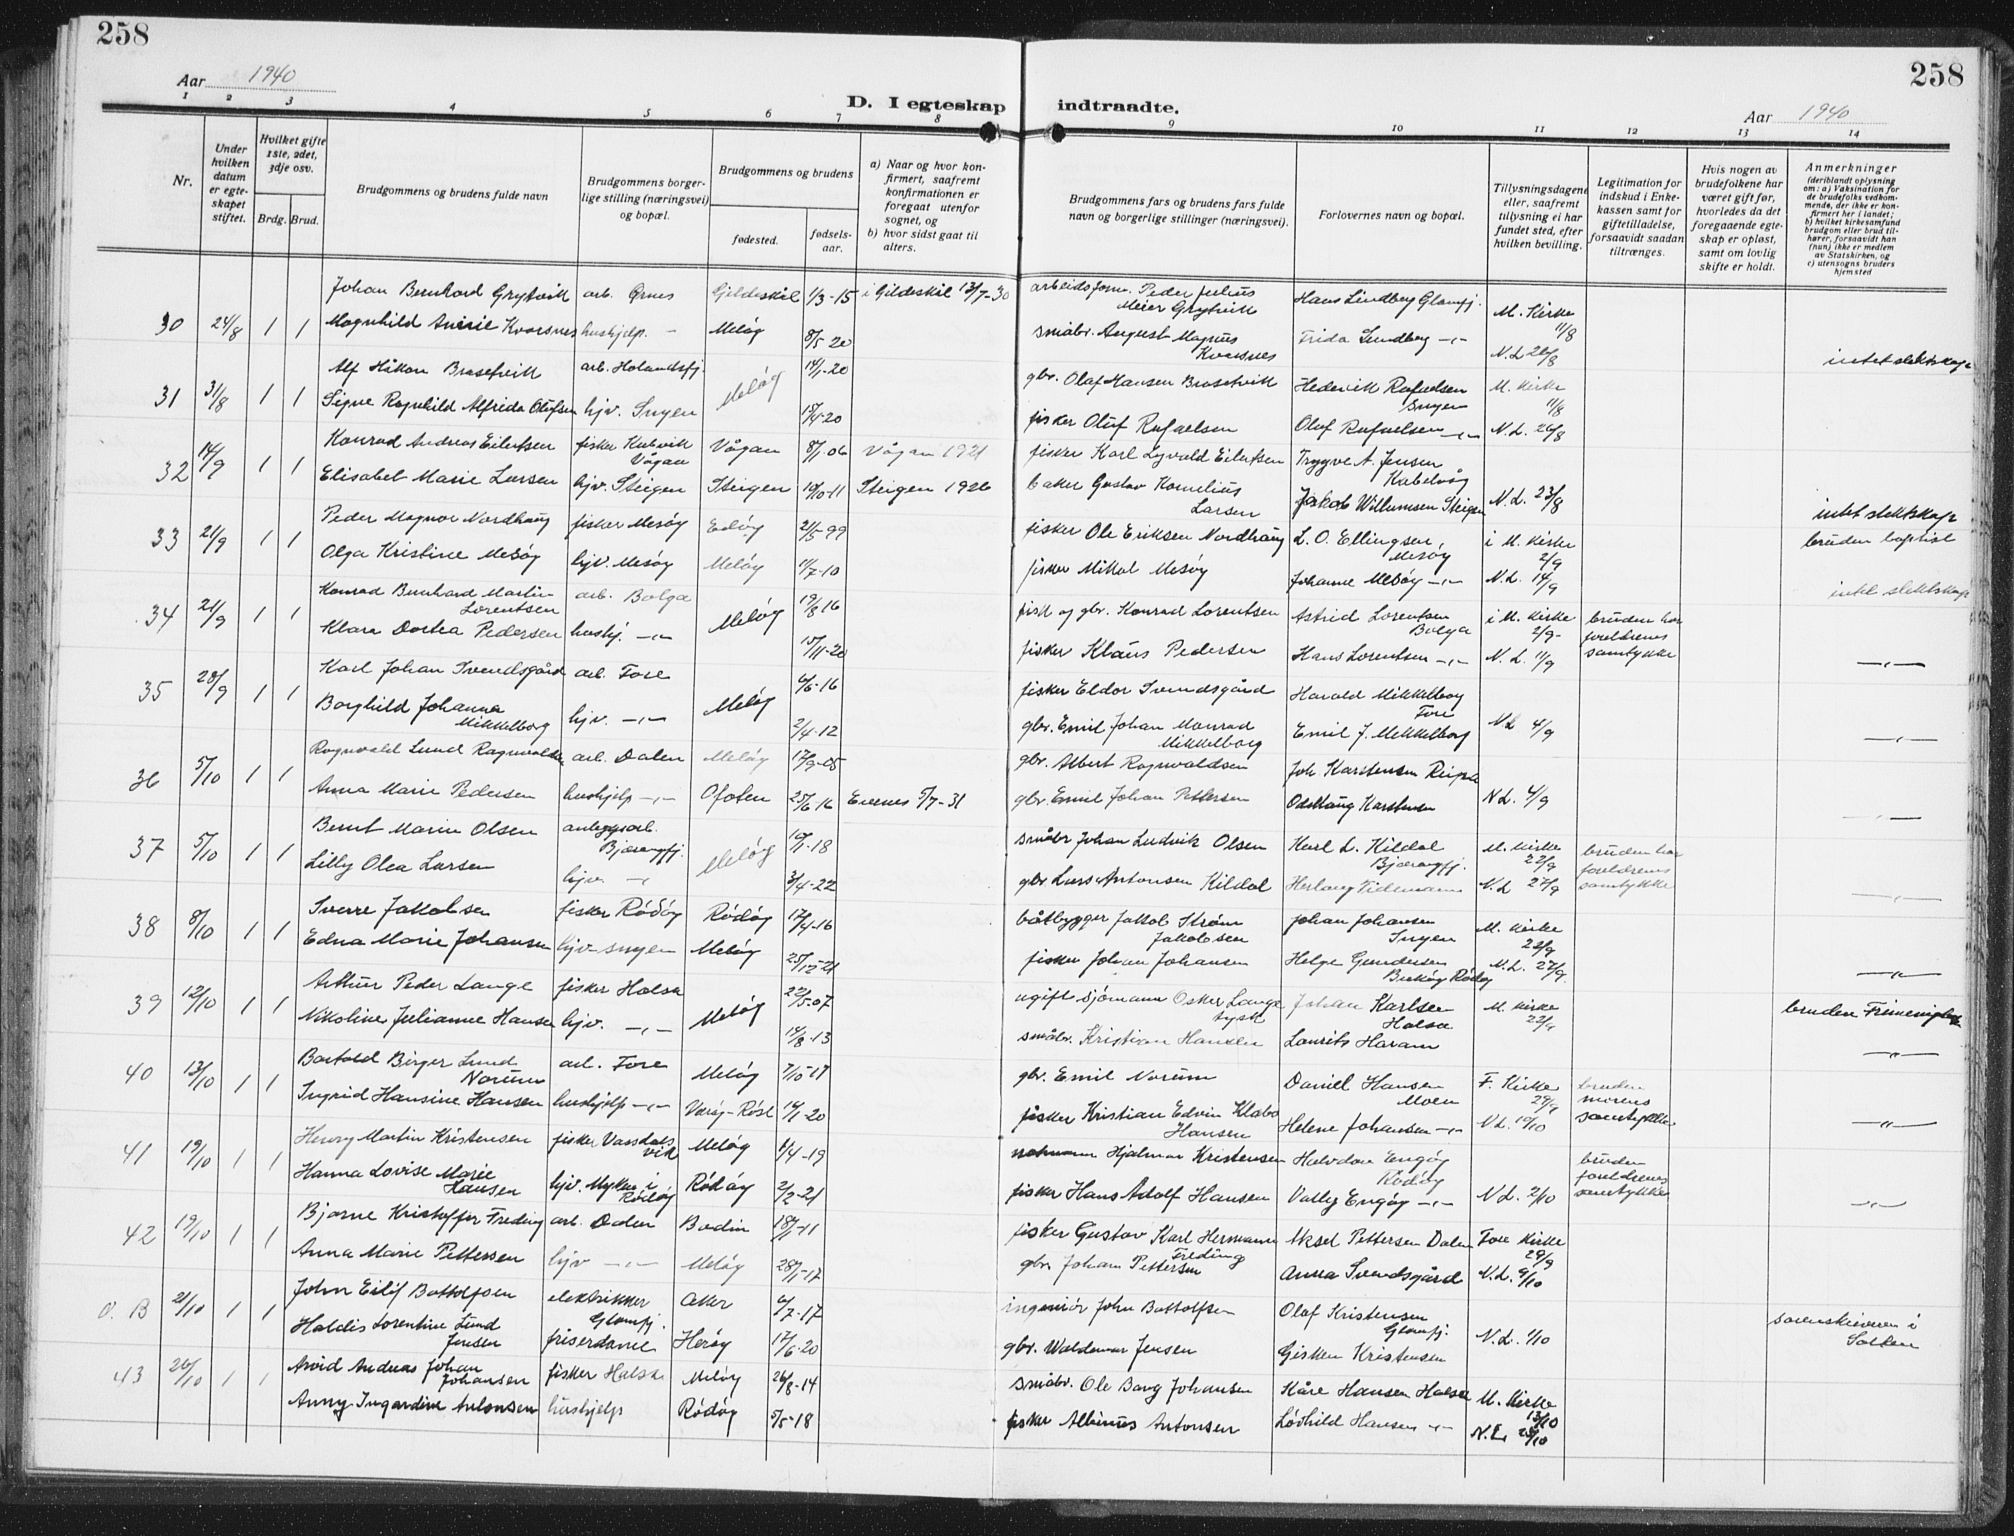 258
258
Aar 1940
D. I egteskap indtraadte.
Aar 1940
1 2 3 4 5 6 7 8 9 10 11 12 13 14
Nr.
Under hvilken datum er egte-skapet stiftet.
Hvilket gifte 1ste, 2det, 3dje osv.
Brdg. Brud.
Brudgommens og brudens fulde navn
Brudgommens borger-lige stilling (næringsvei) og bopæl.
Brudgommens og brudens
fødested.
fødsels-aar.
a) Naar og hvor kon-firmert, saafremt konfirmationen er foregaat utenfor sognet, og
b) hvor sidst gaat til alters.
Brudgommens fars og brudens fars fulde navn og borgerlige stillinger (næringsvei).
Forlovernes navn og bopæl.
Tillysningsdagene eller, saafremt tillysning ei har fundet sted, efter hvilken bevilling.
Legitimation for indskud i Enke-kassen samt for giftetilladelse, forsaavidt saadan tiltrænges.
Hvis nogen av brudefolkene har været gift før, hvorledes da det foregaaende egte-skap er opløst, samt om lovlig skifte er holdt.
Anmerkninger
(deriblandt oplysning om: a) Vaksination for de brudefolks vedkom-mende, der ikke er kon-firmert her i landet; b) hvilket kirkesamfund brudgom eller brud til-hører, forsaavidt han (hun) ikke er medlem av Statskirken, og c) utensogns bruders hjemsted
Johan Bernhard Grytvik arb. Ørnes Gildeskål 1/3-15 i Gildeskål 13/7-30 arbeidsform. Peder Julius Meier Grytvik Hans Lindberg Glomfj. M. Kirke 11/8
30 24/8 1 1 Magnhild Kvarsnes hushjelp - Meløy 8/5 20 småbr. August Magnus Kvarsnes Frida Lindberg -"- N.L. 20/8 intet slektskap
Alf Håkon Brasetvik arb. Holandsfj. Meløy 14/1-20 gbr. Olaf Hansen Brasetvik Hedevik Rafaelsen Engen M. Kirke 11/8
31 31/8 1 1 Signe Ragnhild Alfrida Olufsen hjv. Engen 15/4-20 fisker Oluf Rafaelsen Oluf Rafaelsen -"- N.L. 26/8
Konrad Andreas Eilertsen fisker Kabelvik Vågan Vågan 8/1-06 Vågan 1921 fisker Karl Lyvald Eilertsen Trygve A. Jensen Kabelvåg
32 14/9 1 1 Elisabet Marie Larsen hjv. Steigen Steigen 19/10-11 Steigen 1926 baker Gustav Kornelius Larsen Jakob Willumsen Steigen N.L. 23/8 intet slektskap
Peder Magnor Nordhaug fisker Mesøy Edøy 21/5-99 fisker Ole Eriksen Nordhaug L. O. Ellingsen Mesøy i M. Kirke 2/9 bruden baptist
33 21/9 1 1 Olga Kristine Mesøy hjv. Mesøy Meløy 11/7-10 fisker Mikal Mesøy Johanne Mesøy -"- N.L. 14/9 intet slektskap
Konrad Bernhard Martin Lorentsen arb. Bolga Meløy 19/8-16 fisk og gbr. Konrad Lorentsen Astrid Lorentsen Bolga i M. Kirke 2/9- bruden har foreldrenes samtykke
34 21/9 1 1 Klara Dortea Pedersen hushj. -"- 15/11-20 fisker Klaus Pedersen Hans Lorentsen -"- N.L. 11/9 -"-
Karl Johan Svendsgård arb. Fore Meløy 4/6-16 fisker Eldor Svendsgård Harald Mikkelborg Fore
35 28/9 1 1 Borghild Johanna Mikkelborg hjv. -"- 2/4-12 gbr. Emil Johan Monrad Mikkelborg Emil J. Mikkelborg N.L 4/9 -"-
Ragnvald Lund Ragnvaldsen arb. Dalen Meløy 17/9-05 gbr. Albert Ragnvaldsen Joh Karstensen Reipå
36 5/10 1 1 Anna Marie Pedersen hushjelp -"- Ofoten 25/6-16 Evenes 5/7-31 gbr. Emil Johan Pettersen Oddlaug Karstensen N.L. 4/9 -"-
Bernt Marin Olsen anleggsarb. Bjærangfj. Meløy 10/1-18 småbr Johan Ludvik Olsen Karl L. Kildal Bjærangfj. M. Kirke 22/9 bruden har foreldrenes samtykke
37 5/10 1 1 Lilly Olea Larsen hjv. -"- 3/4-22 gbr Lars Antonsen Kildal Herlaug Tidemann N.L 27/9 -"-
Sverre Jakobsen fisker Rødøy Rødøy 17/4-16 båtbygger Jakob Strøm Jakobsen Johan Johansen Engen M. Kirke 22/9
38 8/10 1 1 Edna Marie Johansen hjv. Engen Meløy 25/12-21 fisker Johan Johansen Helge Gundersen Rødøy N.L. 27/9. -"-
Arthur Peder Lange fisker Halsa Meløy 22/5-07 ugift sjømann Osker Lange tysk Johan Karlsen Halsa M. Kirke 22/9 bruden
39 12/10 1 1 Nikoline Julianne Hansen hjv. -"- 14/8-13 småbr. Kristian Hansen Laurits Haram -"-
Bartold Birger Lund Norum arb. Fore Meløy 7/10-17 gbr. Emil Norum Daniel Hansen Moen F. Kirke 29/9 bruden morens samtykke
40 13/10 1 1 Ingrid Hansine Hansen hushjelp -"- Værøy-Røst 14/1-20 fisker Kristian Edvin Klabo Hansen Helene Johansen -"- N.L. 10/10 -"-
Henry Martin Kristensen fisker Vassdalsvik Meløy 6/4-19 Hjalmar Kristensen Halvdan Engøy Rødøy bruden foreldrenes samtykke
41 19/10 1 1 Hanna Lovise Marie Hansen hjv. Myken i Rødøy Rødøy 2/2-21 fisker Hans Adolf Hansen Valley Engøy -"- N.L. 2/10 -"-
Bjarne Kristoffer Freding arb. Dalen Bodin 18/1-11 fisker Gustav Karl Hermann Freding Aksel Pettersen Dalen Fore Kirke 29/9
42 19/10 1 1 Anna Marie Pettersen hjv -"- Meløy 28/1-17 gbr. Johan Pettersen Anna Svendsgård N.L. 9/10
John Eilif Bottolfsen elektriker Glomfj. Aker 6/7-17 ingeniør John Bottolfsen Olaf Kristensen Glomfj. sorenskriveren i Salten
O. B 21/10 1 1 Haldis Lorentine Lund Jensen friserdame Herøy 17/6-20 gbr. Waldemar Jensen Gisken Kristensen N.L. 1/10
43 26/10 1 1 Arvid Andreas Johan Johansen fisker Halsa Meløy 26/8-14 småbr. Ole Bang Johansen Kåre Hansen Halsa M. Kirke 13/10
Anny Ingardine Antonsen hushjelp Rødøy 5/5-18 fisker Albinus Antonsen Lövhild Hansen -"- N.L. 23/10